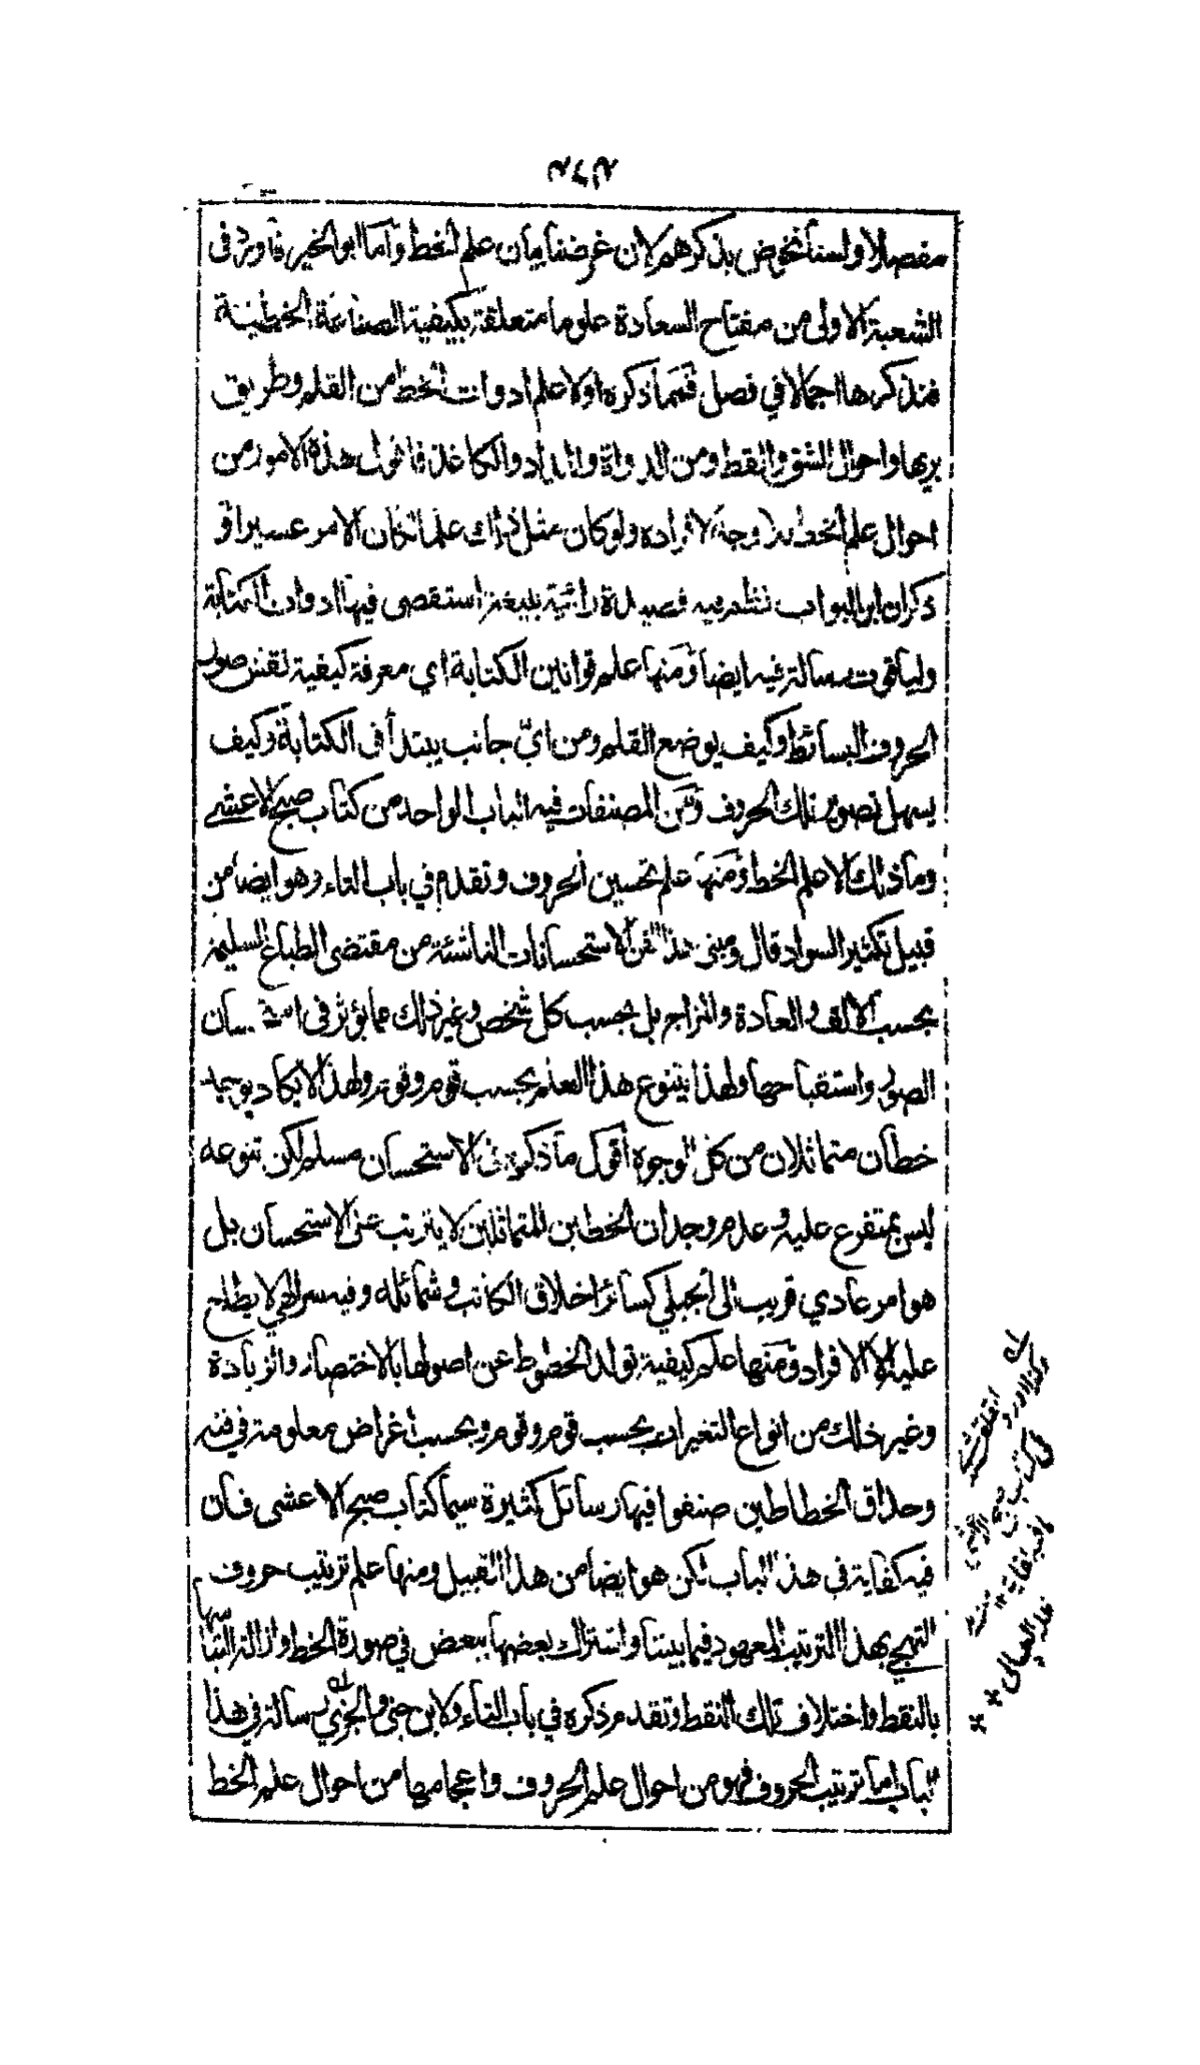 مفصلا ولسنا نخوض بذكرهم لان غرضنا بيان علم الخط وأما ابو الخير فاورد في
الشعبة الاولى من مفتاح السعادة علوما متعلقة بكيفية الصناعة الخطية
فنذكرها اجمالا في فصل فمما ذكره اولا علم ادوات الخط من القلم وطريق
بريها واحوال الشق والقط ومن الدواة والمداد والكاغذ فاقول هذه الامور من
احوال علم الخط فلا وجه لافراده ولو كان مثل ذلك علما لكان الامر عسيرا و
ذكر ان ابن البواب نظم فيه قصيدة رائية بليغة استقصى فيها ادوات الكتابة
ولياقوت رسالة فيه ايضا ومنها علم قوانين الكتابة اي معرفة كيفية نقش صور
الحروف البسائط وكيف يوضع القلم ومن اي جانب يبتدأ في الكتابة وكيف
يسهل تصوير تلك الحروف ومن المصنفات فيه الباب الواحد من كتاب صبح الاعشى
وما ذلك الا علم الخط ومنها علم تحسين الحروف وتقدم في باب التاء وهو ايضا من
قبيل تكثير السواد قال ومبنى هذا الفن الاستحسانات الناشئة من مقتضى الطباع السليمة
بحسب الالف والعادة والمزاج بل بحسب كل شخص وغير ذلك مما يؤثر في استحسان
الصور واستقباحها ولهذا يتنوع هذا العلم بحسب قوم وقوم ولهذا لا يكاد يوجد
خطان متماثلان من كل الوجوه أقول ما ذكره في الاستحسان مسلم لكن تنوعه
ليس بمتفرع عليه وعدم وجدان الخطين المتماثلين لا يترتب على الاستحسان بل
هو امر عادي قريب الى الجبلي كسائر اخلاق الكاتب وشمائله وفيه سر الهي لا يطلع
عليه الا الافراد ومنها علم كيفية تولد الخطوط عن اصولها بالاختصار والزيادة
وغير ذلك من انواع التغيرات بحسب قوم وقوم وبحسب اغراض معلومة في فنه
وحذاق الخطاطين صنفوا فيها رسائل كثيرة سيما كتاب صبح الاعشى فان
فيه كفاية في هذا الباب لكن هو ايضا من هذا القبيل ومنها علم ترتيب حروف
التهجي بهذا الترتيب المعهود فيما بيننا واشتراك بعضها ببعض في صورة الخط وازالة التباسها
بالنقط واختلاف تلك النقط وتقدم ذكره في باب التاء ولابن جني والجزري رسالة في هذا
الباب اما ترتيب الحروف فهو من احوال علم الحروف واعجامها من احوال علم الخط